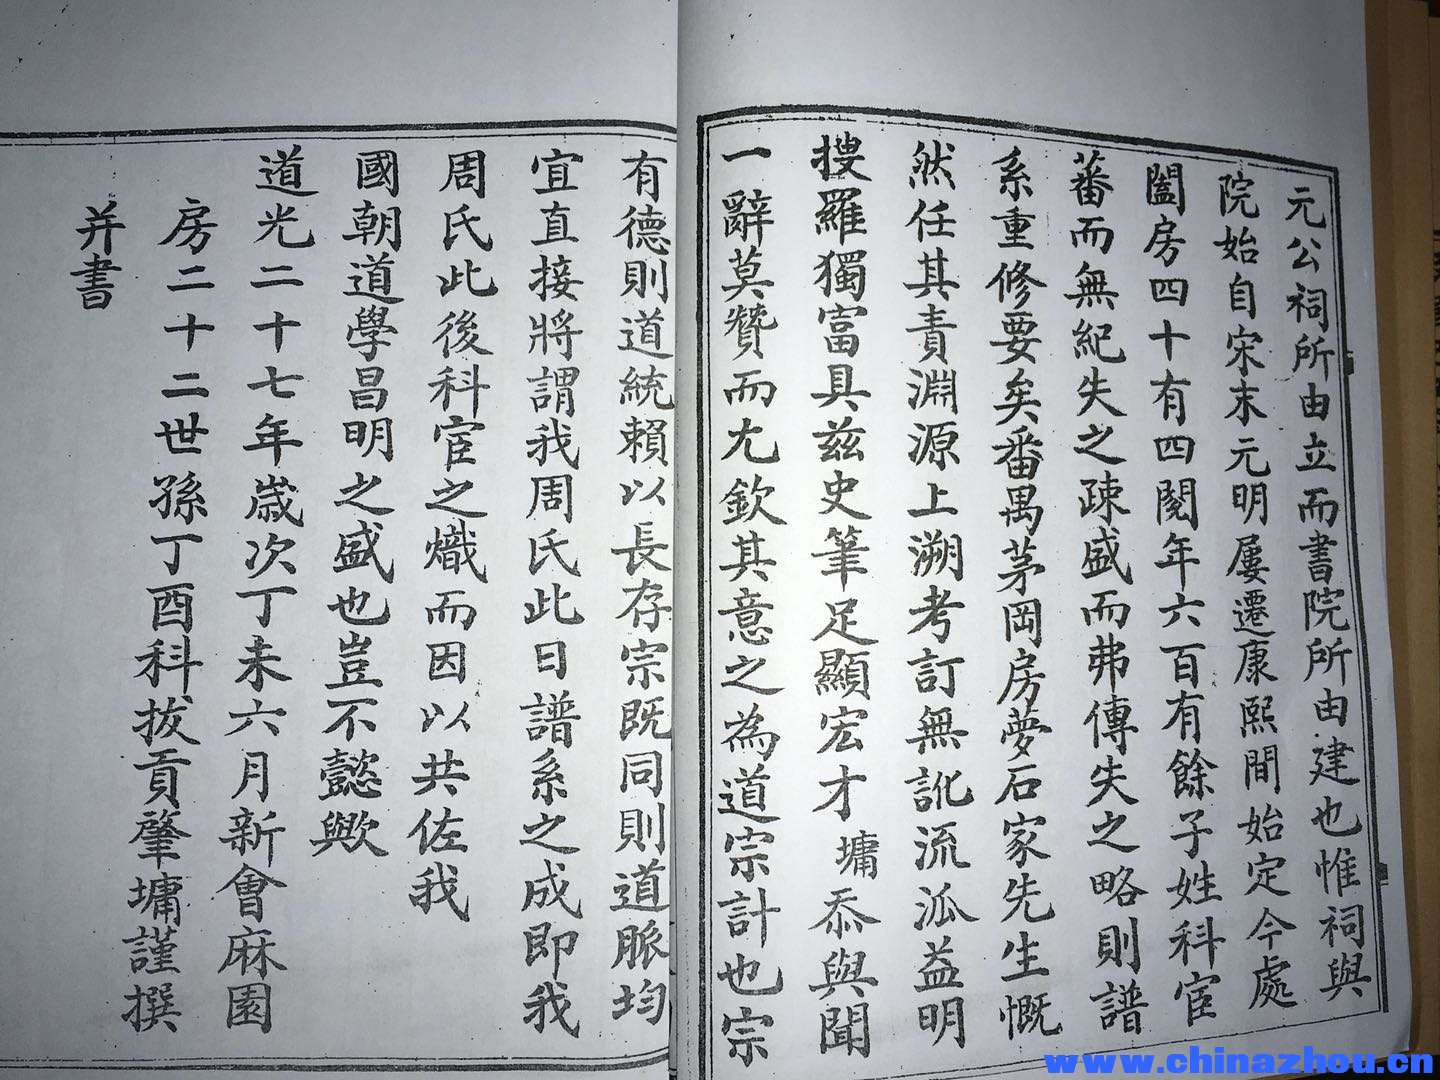 元公祠所由立而書院所由建也惟祠與
院始自宋末元明屢遷康熙間始定今處
闔房四十有四閱年六百有餘子姓科宦
蕃而無紀失之疎盛而弗傳失之略則譜
系重修要矣番禺茅岡房夢石家先生慨
然任其責淵源上溯考訂無訛流泒益明
搜羅獨富具茲史筆足顯宏才墉忝與聞
一辭莫贊而尢欽其意之為道宗計也宗
有德則道統賴以長存宗既同則道脈均
宜直接將謂我周氏此日譜系之成即我
周氏此後科宦之熾而因以共佐我
國朝道學昌明之盛也豈不懿歟
道光二十七年歲次丁未六月新會麻園
房二十二世孫丁酉科拔貢肇墉謹撰
并書
www.chinazhou.cn